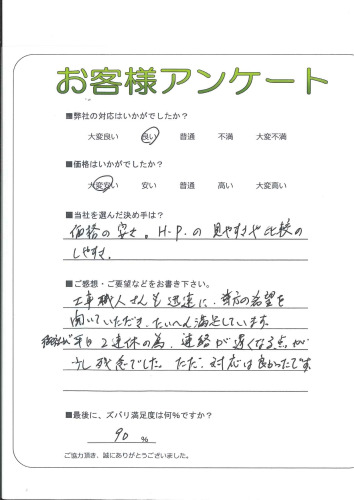 お客様アンケート
■弊社の対応はいかがでしたか？
大変良い 良い 普通 不満 大変不満
■価格はいかがでしたか？
大変安い 安い 普通 高い 大変高い
■当社を選んだ決め手は？
価格の安さ。H.P.の見やすさや比較の
しやすさ.
■ご感想・ご要望などをお書き下さい。
工事職人さんも迅速に、当方の希望を
聞いていただき、たいへん満足しています。
御社が平日2連休の為、連絡が遅くなる点が
少し残念でした。ただ、対応は良かったです。
■最後に、ズバリ満足度は何%ですか？
90 %
ご協力頂き、誠にありがとうございました。